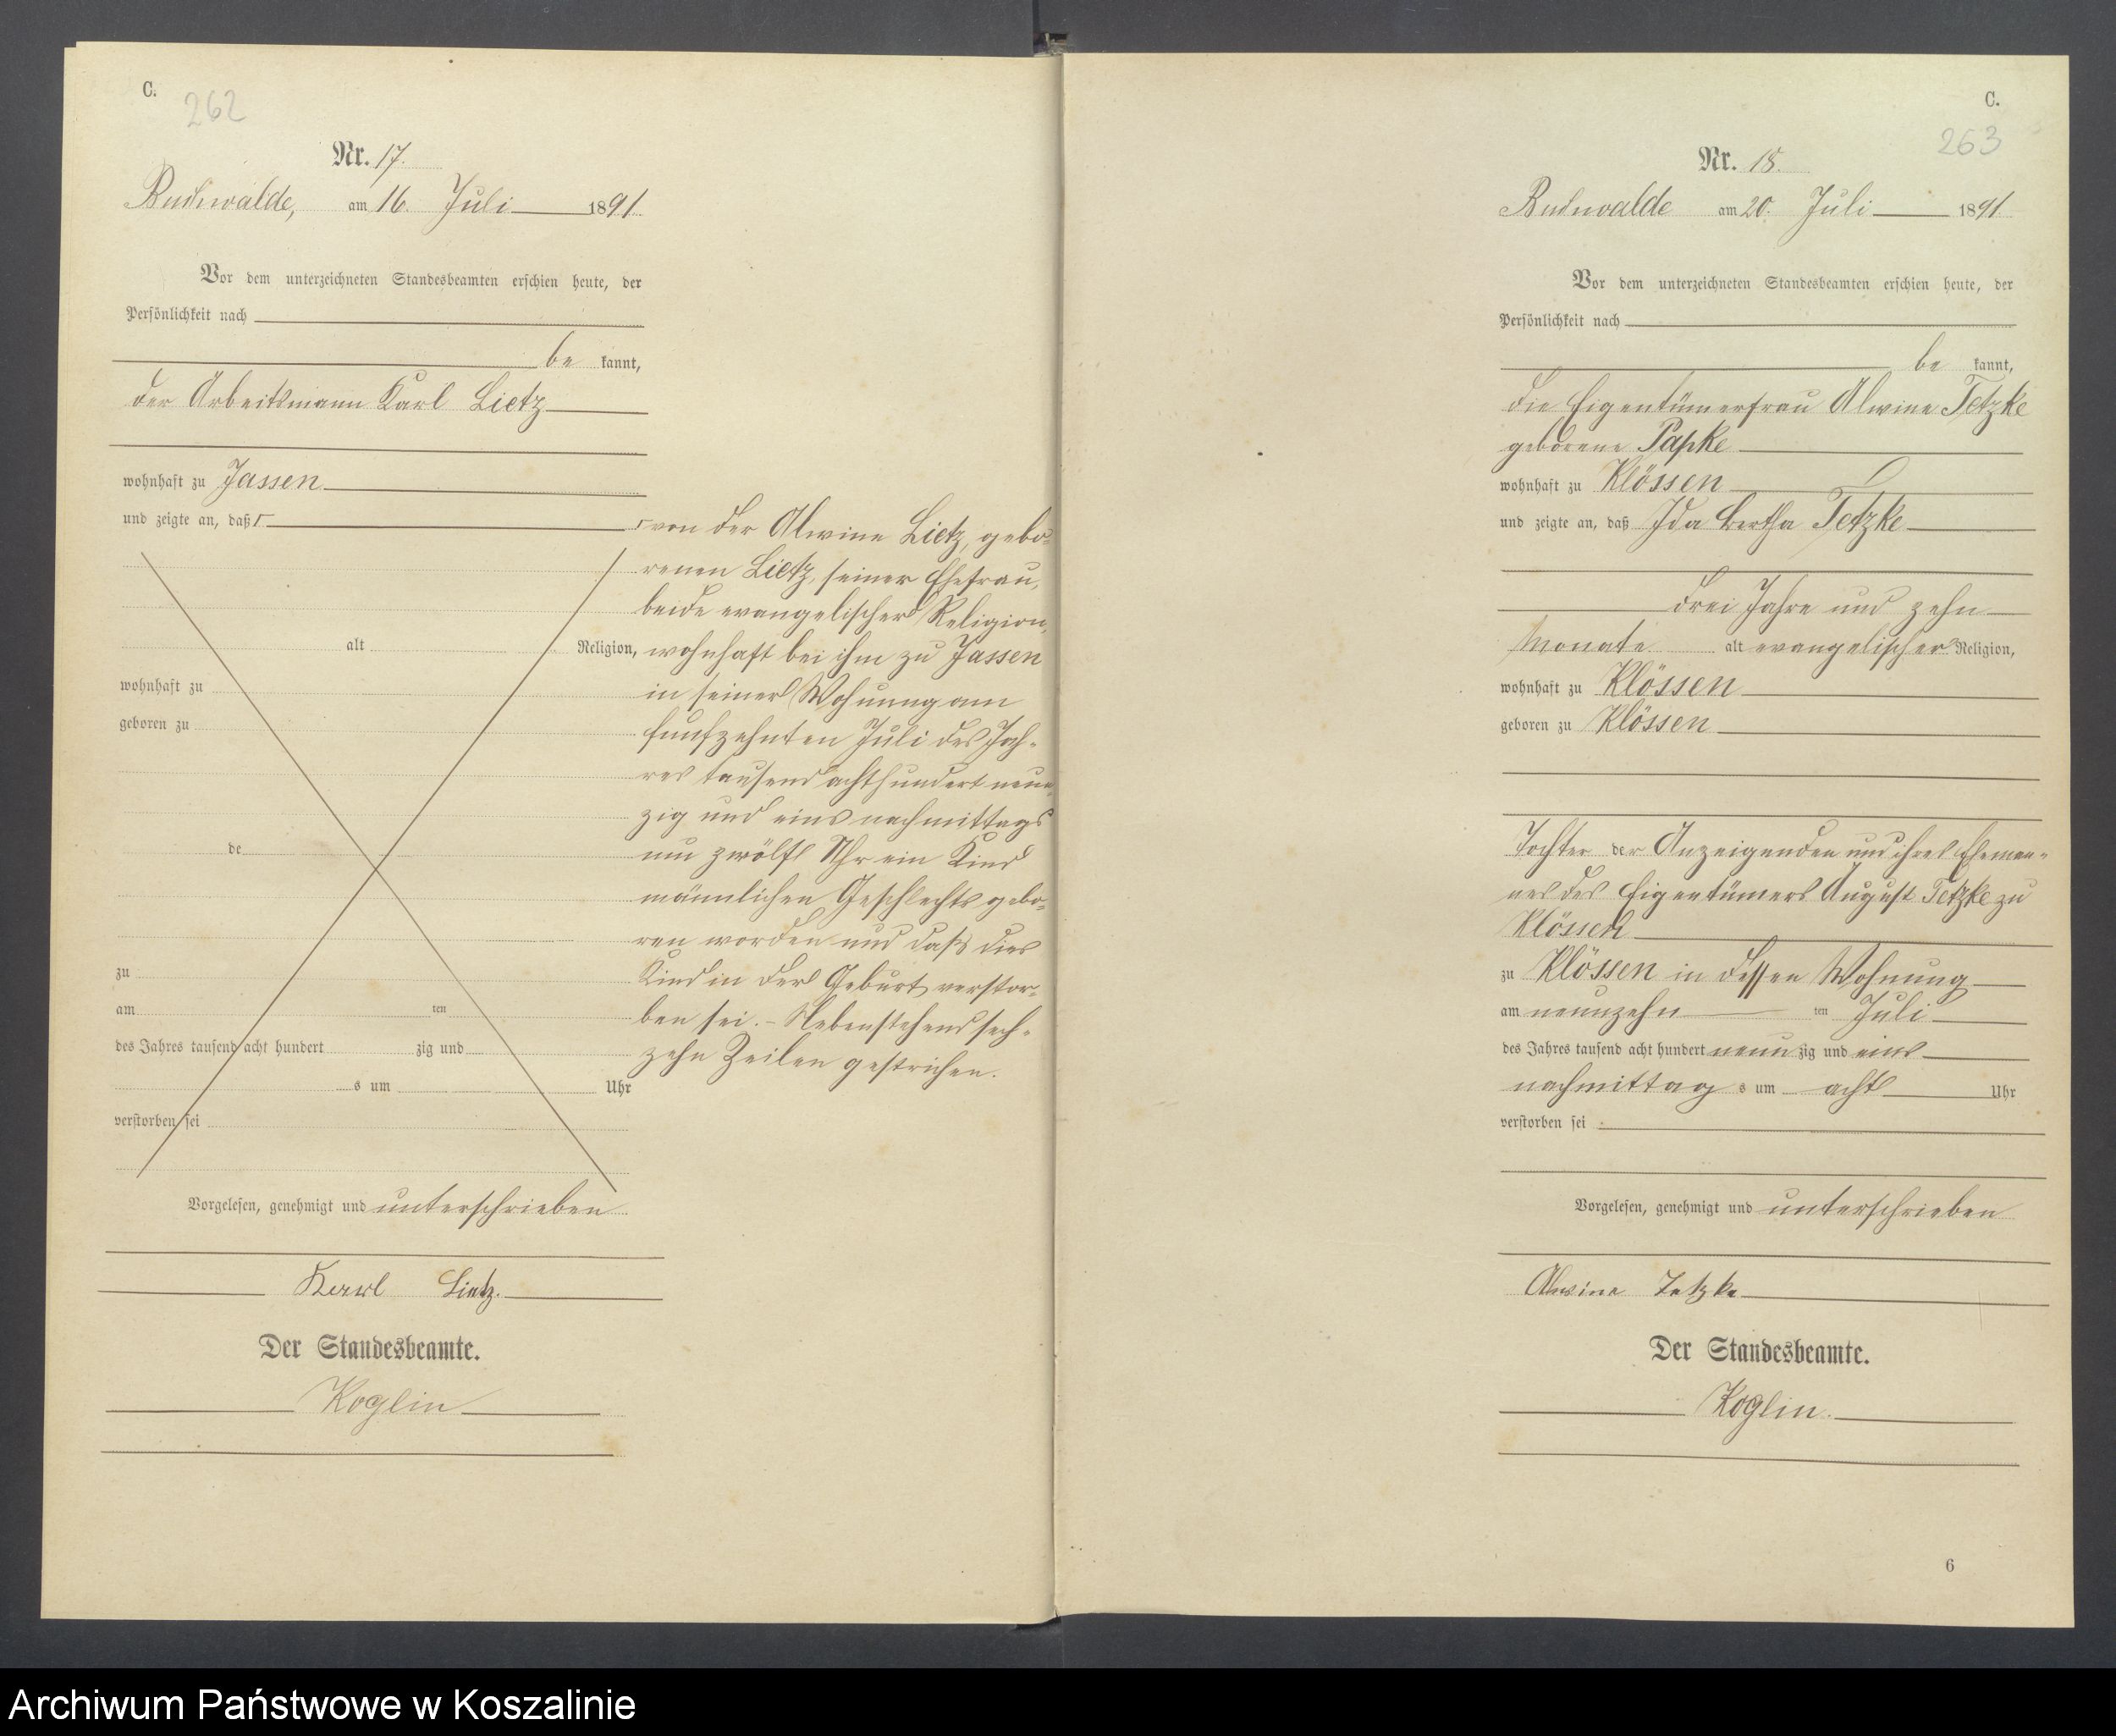 C.
262
Nr. 17.
Buchwalde, am 16. Juli 1891.
Vor dem unterzeichneten Standesbeamten erschien heute, der
Persönlichkeit nach
be kannt,
der Arbeitsmann Karl Lietz
wohnhaft zu Jassen
und zeigte an, daß Γ
alt Religion,
wohnhaft zu
geboren zu
de
zu
am ten
des Jahres tausend acht hundert zig und
s um Uhr
verstorben sei
Γ von der Alwine Lietz, gebo-
renen Lietz, seiner Ehefrau,
beide evangelischer Religion,
wohnhaft bei ihm zu Jassen
in seiner Wohnung am
funfzehnten Juli des Jah-
res tausend achthundert neun-
zig und eins nachmittags
um zwölf Uhr ein Kind
männlichen Geschlechts gebo-
ren worden und daß dies
Kind in der Geburt verstor-
ben sei. - Nebenstehend sech-
zehn Zeilen gestrichen.
Vorgelesen, genehmigt und unterschrieben
Karl Lietz.
Der Standesbeamte.
Koglin
C.
263
Nr. 18.
Buchwalde am 20. Juli 1891
Vor dem unterzeichneten Standesbeamten erschien heute, der
Persönlichkeit nach
be kannt,
die Eigentümerfrau Alwine Tetzke
geborene Papke
wohnhaft zu Klössen
und zeigte an, daß Ida Bertha Tetzke
drei Jahre und zehn
Monate alt evangelischer Religion,
wohnhaft zu Klössen
geboren zu Klössen
Tochter der Anzeigenden und ihres Eheman-
nes des Eigentümers August Tetzke zu
Klössen
zu Klössen in dessen Wohnung
am neunzehn ten Juli
des Jahres tausend acht hundert neun zig und eins
nachmittag s um acht Uhr
verstorben sei
Vorgelesen, genehmigt und unterschrieben
Alwine Tetzke
Der Standesbeamte.
Koglin.
6
Archiwum Państwowe w Koszalinie